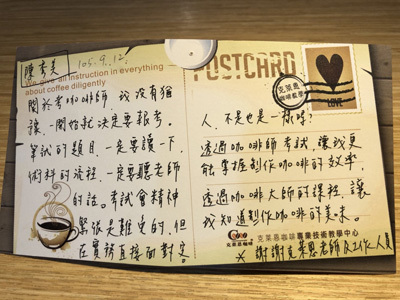 陳秀美
105.9.12.
We give an instruction in everything
about coffee diligently
關於考咖啡師，我沒有猶
豫，開始就決定要報考。
筆試的題目，一定要讀一下，
術科的流程，一定要聽老師
的話。考試會精神
緊張是難免的，但
在實務直接面對客
POSTCARD
克萊恩
咖啡藝學
LOVE
人，不是也是一樣嗎？
透過咖啡師考試，讓我更
能掌握製作咖啡的效率，
透過咖啡大師的課程，讓
我知道製作咖啡的美味。
克萊恩咖啡
克萊恩咖啡專業技術教學中心
※謝謝克萊恩老師及工作人員